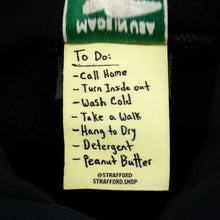 To Do:
-Call Home
-Turn Inside out
-Wash Cold
-Take a Walk
-Hang to Dry
-Detergent
-Peanut Butter
@STRAFFORD
STRAFFORD.SHOP